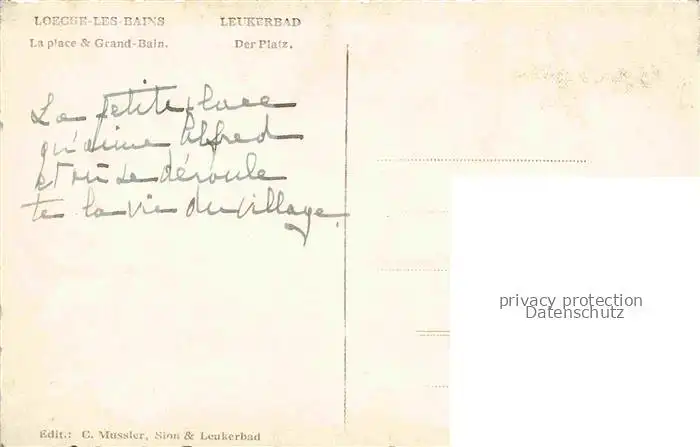 LOECHE-LES-BAINS LEUKERBAD
La place & Grand-Bain. Der Platz.
La petite place
qu'aime Alfred
et où se déroule
te la vie du village.
privacy protection
Datenschutz
Edit.: C. Mussler, Sion & Leukerbad